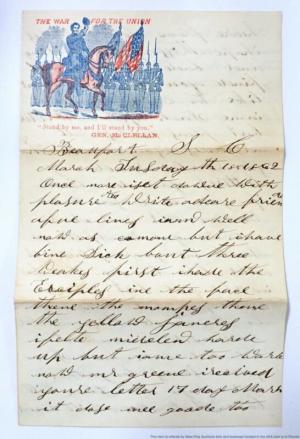 THE WAR FOR THE UNION
"Stand by me, and I'll stand by you."
GEN. McCLELLAN.
Beaufort S C
March 18 1862
Once more iset down with
pleasure to write a deare frien
afue lines iam well
now as comon but ihave
bine Sick bout three
weakes first ihade the
in the face
then the mompes then
the yellow Janeres
ifelte hard
up but iame too work
now mr greene ireceived
you're letter 17 day March
it dose me goode too